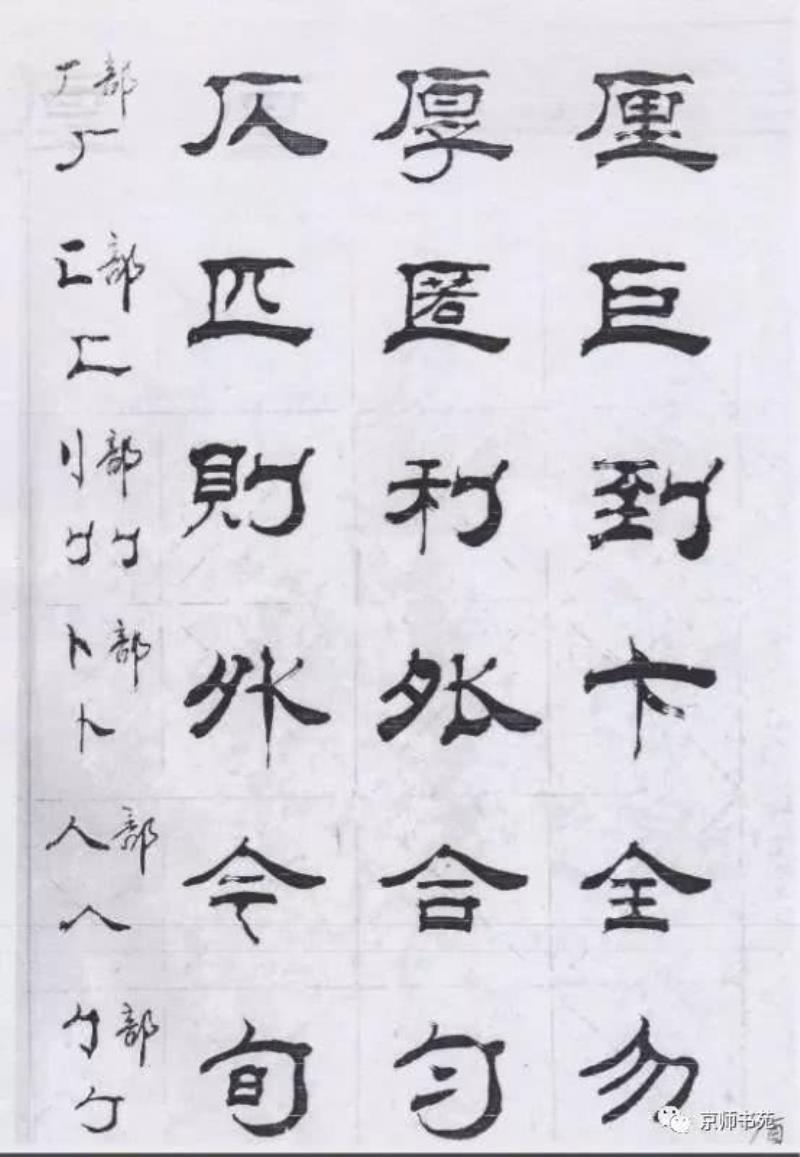 厂部 仄 厚 厘
厂
匚部 匹 匿 巨
匚
刂部 則 利 到
刂 刂
卜部 外 卞
卜
人部 令 合 全
人
勹部 旬 匀 勿
勹
京师书苑